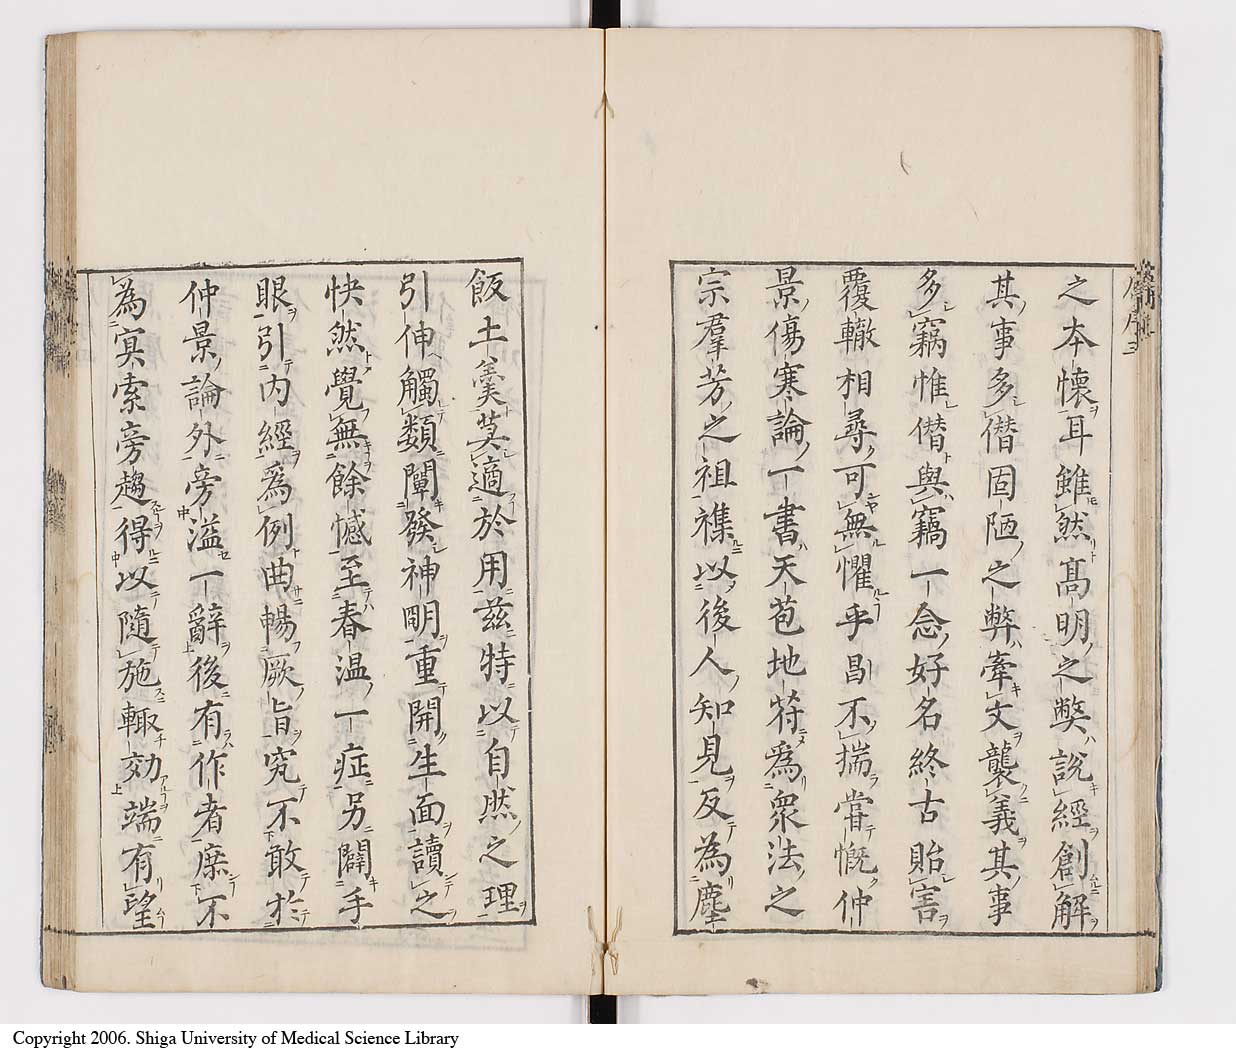 之本懷耳雖然高明之弊說經創解
其事多僭固陋之弊牽文襲義其事
多竊惟僭與竊一念好名終古貽害
覆轍相尋可無懼乎昌不揣嘗慨仲
景傷寒論一書天苞地符為衆法之
宗羣芳之祖襍以後人知見反為塵
飯土羹莫適於用兹特以自然之理
引伸觸類闡發神明重開生面讀之
快然覺無餘憾至春温一症另闢手
眼引內經爲例曲暢厥旨究不敢於
仲景論外旁溢一辭後有作者庶不
為冥索旁趨得以隨施輙効端有望
Copyright 2006. Shiga University of Medical Science Library